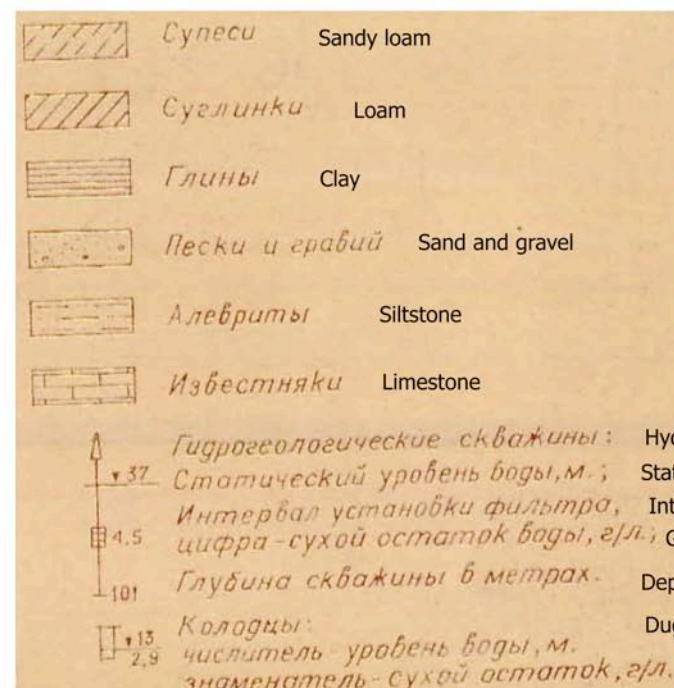 Супеси Sandy loam
Суглинки Loam
Глины Clay
Пески и гравий Sand and gravel
Алевриты Siltstone
Известняки Limestone
Гидрогеологические скважины: Hyd
▼37 Статический уровень воды, м.; Stat
Интервал установки фильтра, Int
4.5 цифра-сухой остаток воды, г/л.; G
101 Глубина скважины в метрах. Dep
Колодцы: Dug
▼13 числитель-уровень воды, м.
2,9 знаменатель-сухой остаток, г/л.